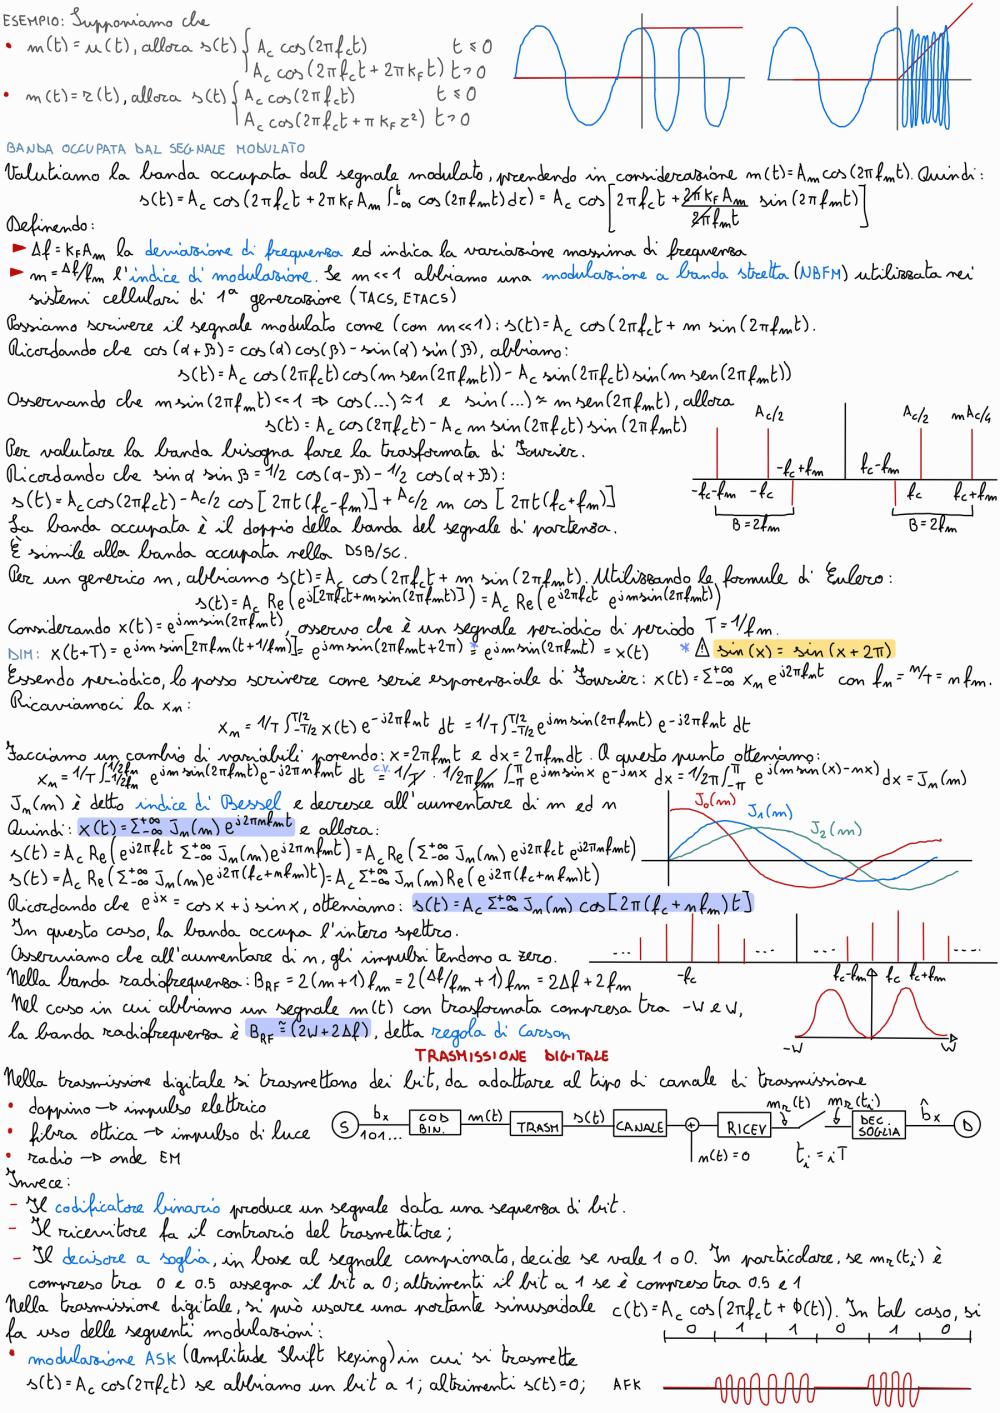 ESEMPIO: Supponiamo che
• m(t) = u(t), allora s(t) { A_c cos(2πf_ct) t ≤ 0
A_c cos(2πf_ct + 2πk_Ft) t > 0
• m(t) = r(t), allora s(t) { A_c cos(2πf_ct) t ≤ 0
A_c cos(2πf_ct + πk_F τ²) t > 0
BANDA OCCUPATA DAL SEGNALE MODULATO
Valutiamo la banda occupata dal segnale modulato, prendendo in considerazione m(t) = A_m cos(2πf_mt). Quindi:
s(t) = A_c cos(2πf_ct + 2πk_F A_m ∫_-∞^t cos(2πf_mt)dτ) = A_c cos[2πf_ct + 2πk_F A_m / 2πf_mt sin(2πf_mt)]
Definendo:
► Δf = k_F A_m la deviazione di frequenza ed indica la variazione massima di frequenza
► m = Δf/f_m l'indice di modulazione. Se m << 1 abbiamo una modulazione a banda stretta (NBFM) utilizzata nei
sistemi cellulari di 1ª generazione (TACS, ETACS)
Possiamo scrivere il segnale modulato come (con m << 1): s(t) = A_c cos(2πf_ct + m sin(2πf_mt).
Ricordando che cos(α+β) = cos(α)cos(β) - sin(α)sin(β), abbiamo:
s(t) = A_c cos(2πf_ct)cos(m sen(2πf_mt)) - A_c sin(2πf_ct)sin(m sen(2πf_mt))
Osservando che m sin(2πf_mt) << 1 ⇒ cos(...) ≈ 1 e sin(...) ≈ m sen(2πf_mt), allora
s(t) = A_c cos(2πf_ct) - A_c m sin(2πf_ct) sin(2πf_mt)
A_c/2 A_c/2 mA_c/4
-f_c+f_m f_c-f_m
-f_c-f_m -f_c f_c f_c+f_m
B = 2f_m B = 2f_m
Per valutare la banda bisogna fare la trasformata di Fourier.
Ricordando che sin α sin β = 1/2 cos(α-β) - 1/2 cos(α+β):
s(t) = A_c cos(2πf_ct) - A_c/2 cos[2πt(f_c-f_m)] + A_c/2 m cos[2πt(f_c+f_m)]
La banda occupata è il doppio della banda del segnale di partenza.
È simile alla banda occupata nella DSB/SC.
Per un generico m, abbiamo s(t) = A_c cos(2πf_ct + m sin(2πf_mt). Utilizzando le formule di Eulero:
s(t) = A_c Re(e^{j[2πf_ct + m sin(2πf_mt)]}) = A_c Re(e^{j2πf_ct} e^{jm sin(2πf_mt)})
Considerando x(t) = e^{jm sin(2πf_mt)}, osservo che è un segnale periodico di periodo T = 1/f_m.
DIM: x(t+T) = e^{jm sin[2πf_m(t+1/f_m)]} = e^{jm sin(2πf_mt+2π)} =* e^{jm sin(2πf_mt)} = x(t) * ⚠ sin(x) = sin(x+2π)
Essendo periodico, lo posso scrivere come serie esponenziale di Fourier: x(t) = Σ_-∞^+∞ x_n e^{j2πf_nt} con f_n = n/T = n f_m.
Ricaviamoci la x_n:
x_n = 1/T ∫_-T/2^T/2 x(t) e^{-j2πf_nt} dt = 1/T ∫_-T/2^T/2 e^{jm sin(2πf_mt)} e^{-j2πf_nt} dt
Facciamo un cambio di variabili ponendo: x = 2πf_mt e dx = 2πf_mdt. A questo punto otteniamo:
x_n = 1/T ∫_-1/2f_m^1/2f_m e^{jm sin(2πf_mt)} e^{-j2πnf_mt} dt =^{c.v.} 1/T · 1/2πf_m ∫_-π^π e^{jm sin x} e^{-jnx} dx = 1/2π ∫_-π^π e^{j(m sin(x)-nx)} dx = J_n(m)
J_n(m) è detto indice di Bessel e decresce all'aumentare di m ed n
J_0(m)
J_1(m)
J_2(m)
Quindi: x(t) = Σ_-∞^+∞ J_n(m) e^{j2πnf_mt} e allora:
s(t) = A_c Re(e^{j2πf_ct} Σ_-∞^+∞ J_n(m) e^{j2πnf_mt}) = A_c Re(Σ_-∞^+∞ J_n(m) e^{j2πf_ct} e^{j2πnf_mt})
s(t) = A_c Re(Σ_-∞^+∞ J_n(m) e^{j2π(f_c+nf_m)t}) = A_c Σ_-∞^+∞ J_n(m) Re(e^{j2π(f_c+nf_m)t})
Ricordando che e^{jx} = cos x + j sin x, otteniamo: s(t) = A_c Σ_-∞^+∞ J_n(m) cos[2π(f_c+nf_m)t]
In questo caso, la banda occupa l'intero spettro.
Osserviamo che all'aumentare di n, gli impulsi tendono a zero.
-f_c f_c-f_m f_c f_c+f_m
Nella banda radiofrequenza: B_RF = 2(m+1)f_m = 2(Δf/f_m + 1)f_m = 2Δf + 2f_m
Nel caso in cui abbiamo un segnale m(t) con trasformata compresa tra -W e W,
la banda radiofrequenza è B_RF ≅ (2W + 2Δf), detta regola di Carson
-W W
TRASMISSIONE DIGITALE
Nella trasmissione digitale si trasmettono dei bit, da adattare al tipo di canale di trasmissione
• doppino → impulso elettrico
• fibra ottica → impulso di luce
• radio → onde EM
S b_x 101... COD BIN. m(t) TRASM s(t) CANALE + n(t) = 0 RICEV m_r(t) t_i = iT m_r(t_i) DEC SOGLIA b̂_x D
Invece:
- Il codificatore binario produce un segnale data una sequenza di bit.
- Il ricevitore fa il contrario del trasmettitore;
- Il decisore a soglia, in base al segnale campionato, decide se vale 1 o 0. In particolare, se m_r(t_i) è
compreso tra 0 e 0.5 assegna il bit a 0; altrimenti il bit a 1 se è compreso tra 0.5 e 1
Nella trasmissione digitale, si può usare una portante sinusoidale c(t) = A_c cos(2πf_ct + Φ(t)). In tal caso, si
fa uso delle seguenti modulazioni:
0 1 1 0 1 0
• modulazione ASK (Amplitude Shift Keying) in cui si trasmette
s(t) = A_c cos(2πf_ct) se abbiamo un bit a 1; altrimenti s(t) = 0;
AFK